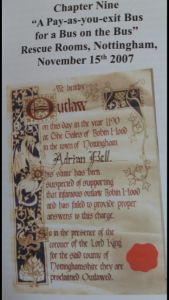 Chapter Nine
“A Pay-as-you-exit Bus
for a Bus on the Bus”
Rescue Rooms, Nottingham,
November 15th 2007
Outlaw
on this day in the year 1190
at the Gates of Robin Hood
in the town of Nottingham
Adrian Bell.
This name has been
suspected of supporting
that infamous outlaw Robin Hood
and has failed to provide proper
answers to this charge.
So in the presence of the
coroner of the Lord King
for the said county of
Nottinghamshire they are
proclaimed Outlawed.